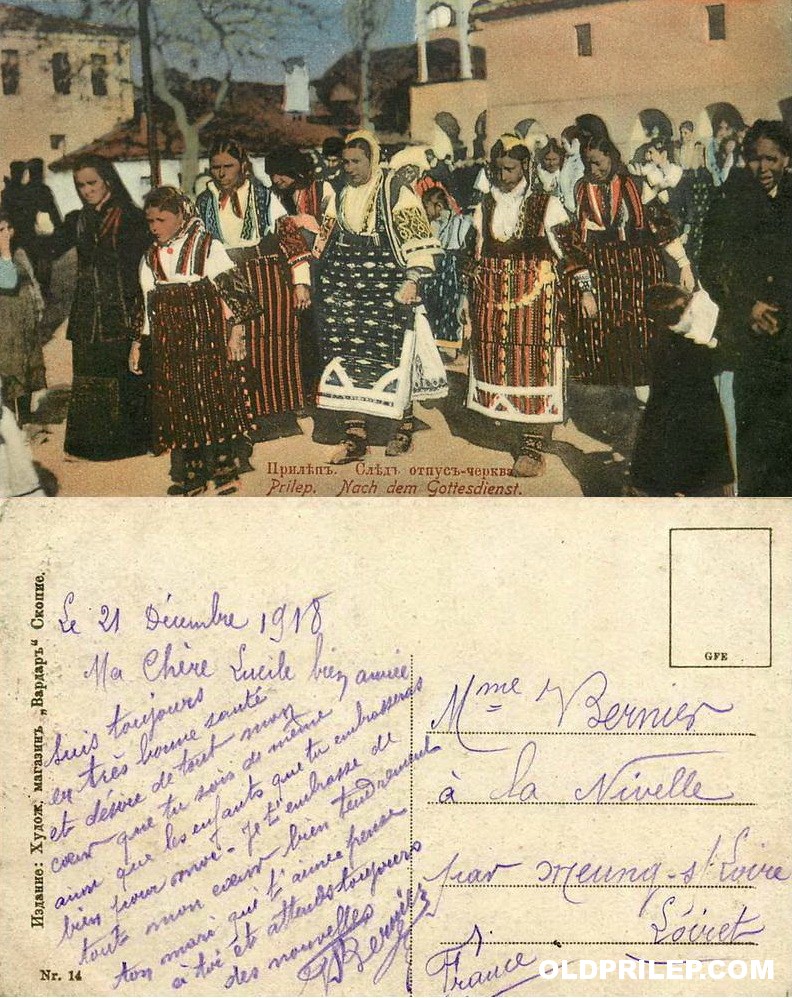 Прилѣпъ. Слѣдъ отпусъ-черква.
Prilep. Nach dem Gottesdienst.
Издание: Худож. магазинъ „Вардаръ“ Скопие.
Nr. 14
GFE
Le 21 Décembre 1918
Ma Chère Lucile bien aimée
suis toujours
en très bonne santé
et désire de tout mon
cœur que tu sois de même,
ainsi que les enfants que tu embrasseras
bien pour moi. Je t'embrasse de
tout mon cœur bien tendrement
ton mari qui t'aime pense
à toi et attends toujours
des nouvelles
Bernier
Mme Bernier
à la Nivelle
par Meung-s/Loire
Loiret
France
OLDPRILEP.COM